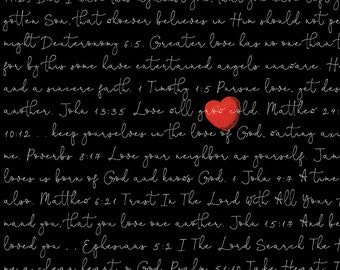 gotten Son, that whoever believes in Him should not pe
might Deuteronomy 6:5. Greater love has no one than
for by this some have entertained angels unaware. H
and a sincere faith. 1 Timothy 1:5 Pursue love, yet des
another. John 13:35 Love will grow cold. Matthew 24
10:12 ... keep yourselves in the love of God, waiting an
me. Proverbs 8:17 Love your neighbor as yourself. Jam
loves is born of God and knows God. 1 John 4:7 A time
also. Matthew 6:21 Trust In The Lord With All Your
mand you, that you love one another. John 15:17 And be
loved you ... Ephesians 5:2 I The Lord Search The H
me a clean heart, o God. Psalm 51:10 Take Heart, I